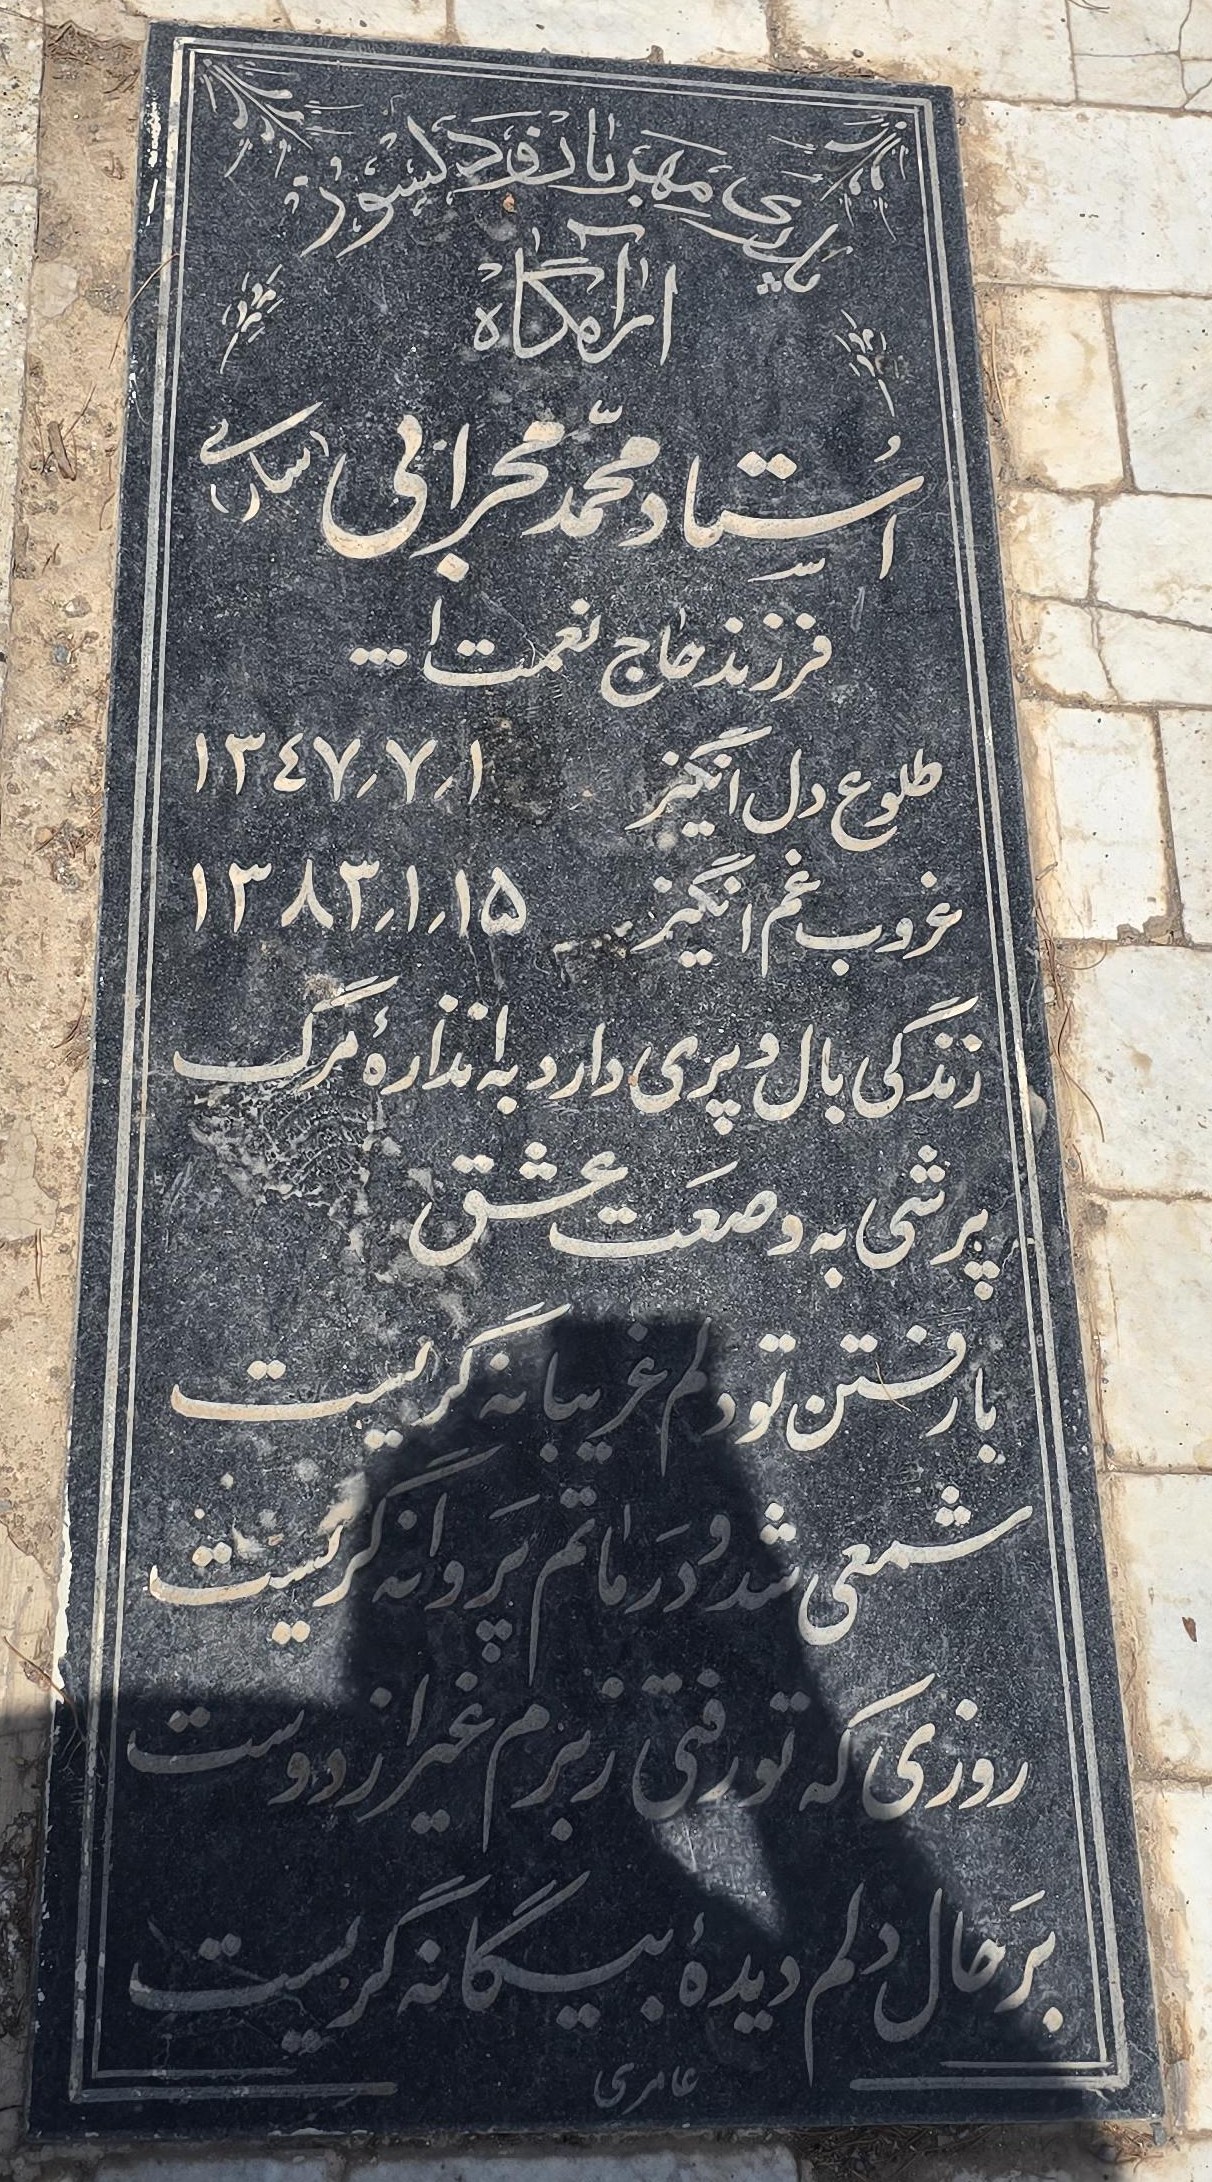 پسری مهربان و دلسوز
آرامگاه
اُستاد محمّد محرابی (ساری)
فرزند حاج نعمت ا...
طلوع دل انگیز ۱٫۷٫۱۳۴۷
غروب غم انگیز ۱۵٫۱٫۱۳۸۳
زندگی بال و پری دارد به اندازهٔ مرگ
پرشی به وصعَت عشق
با رفتن تو دلم غریبانه گریست
شمعی شد و دَر ماتم پَروانه گریست
روزی که تو رفتی ز بزم غیر از دوست
بَر حال دلم دیدهٔ بیگانه گریست
عامری